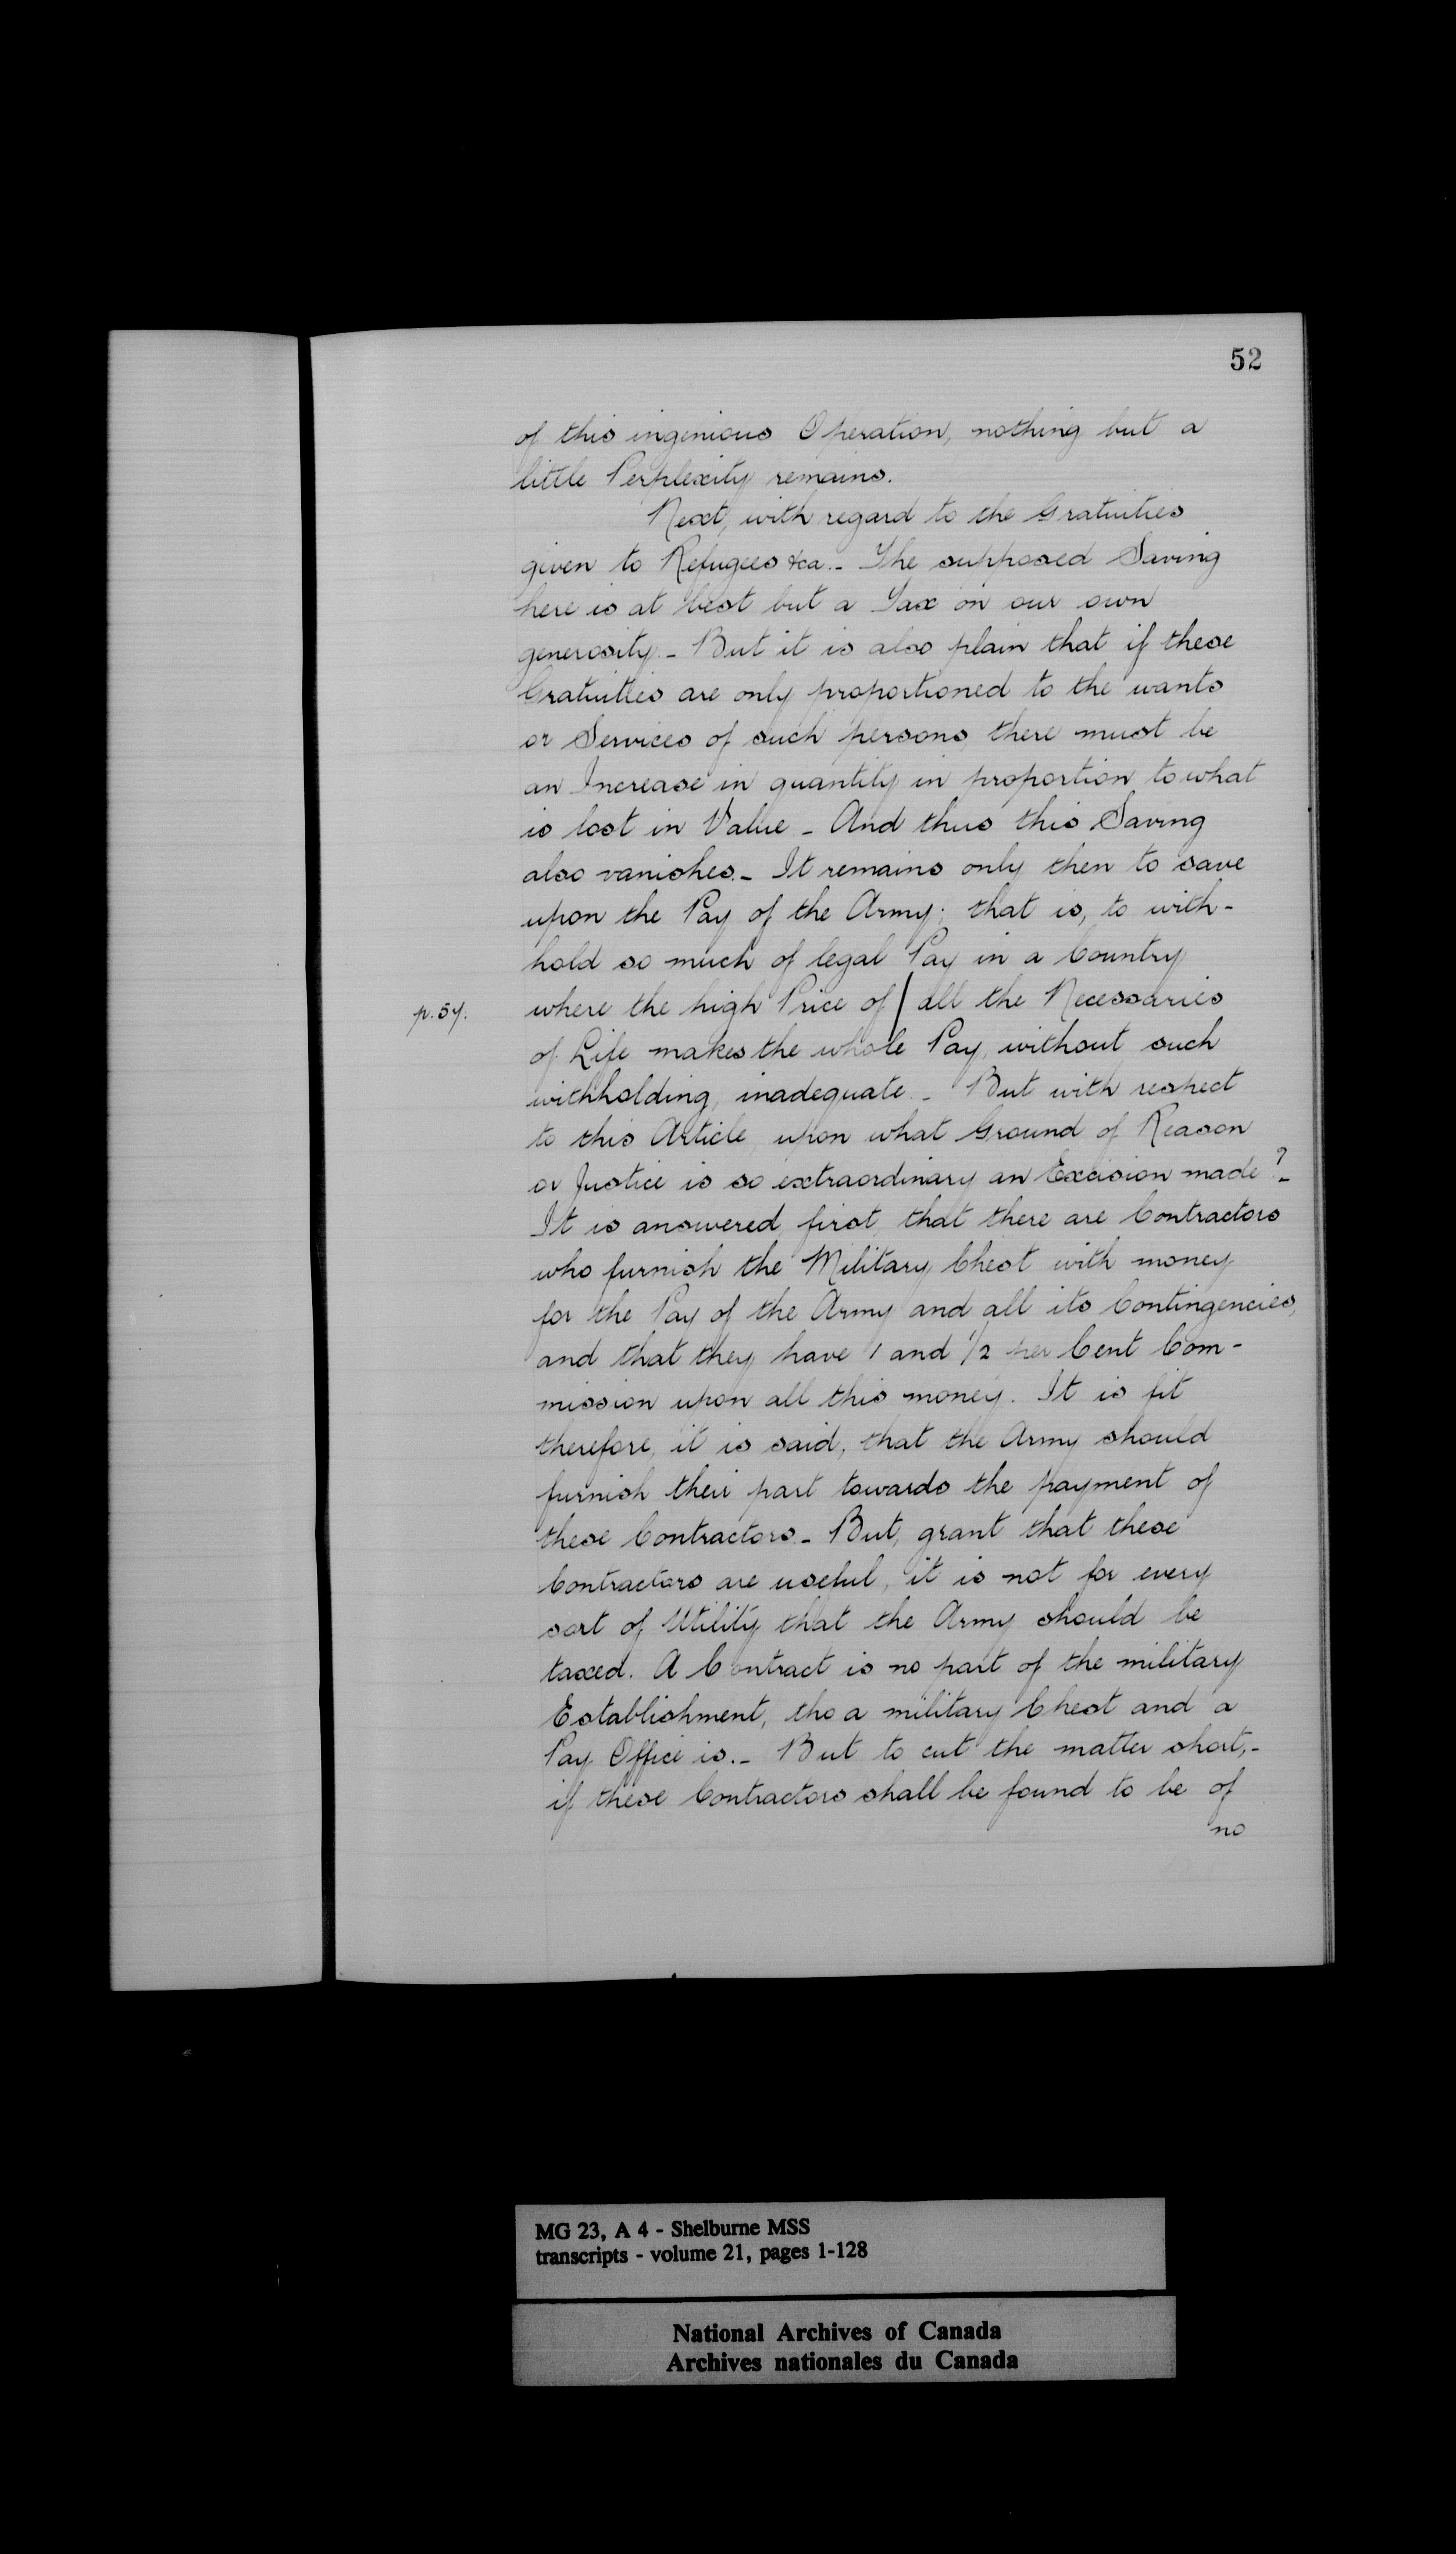 52
of this ingenious Operation, nothing but a
little Perplexity remains.
Next, with regard to the Gratuities
given to Refugees &ca. - The supposed Saving
here is at best but a Tax on our own
generosity. - But it is also plain that if these
Gratuities are only proportioned to the wants
or Services of such persons, there must be
an Increase in quantity in proportion to what
is lost in Value - And thus this Saving
also vanishes. - It remains only then to save
upon the Pay of the Army; that is, to with-
hold so much of legal Pay in a Country
p. 57. where the high Price of / all the Necessaries
of Life makes the whole Pay, without such
withholding, inadequate. - But with respect
to this Article, upon what Ground of Reason
or Justice is so extraordinary an Excision made? -
It is answered, first, that there are Contractors
who furnish the Military Chest with money
for the Pay of the Army and all its Contingencies,
and that they have 1 and 1/2 per Cent Com-
mission upon all this money. It is fit
therefore, it is said, that the Army should
furnish their part towards the payment of
these Contractors. - But, grant that these
Contractors are useful, it is not for every
sort of Utility that the Army should be
taxed. A Contract is no part of the military
Establishment, tho a military Chest and a
Pay Office is. - But to cut the matter short, -
if these Contractors shall be found to be of
no
MG 23, A 4 - Shelburne MSS
transcripts - volume 21, pages 1-128
National Archives of Canada
Archives nationales du Canada